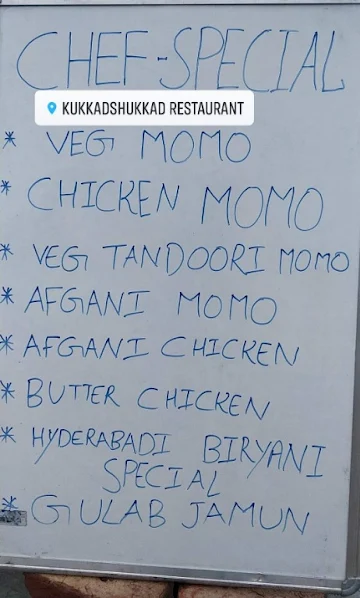 CHEF-SPECIAL
KUKKADSHUKKAD RESTAURANT
* VEG MOMO
* CHICKEN MOMO
* VEG TANDOORI MOMO
* AFGANI MOMO
* AFGANI CHICKEN
* BUTTER CHICKEN
* HYDERABADI BIRYANI
SPECIAL
* GULAB JAMUN